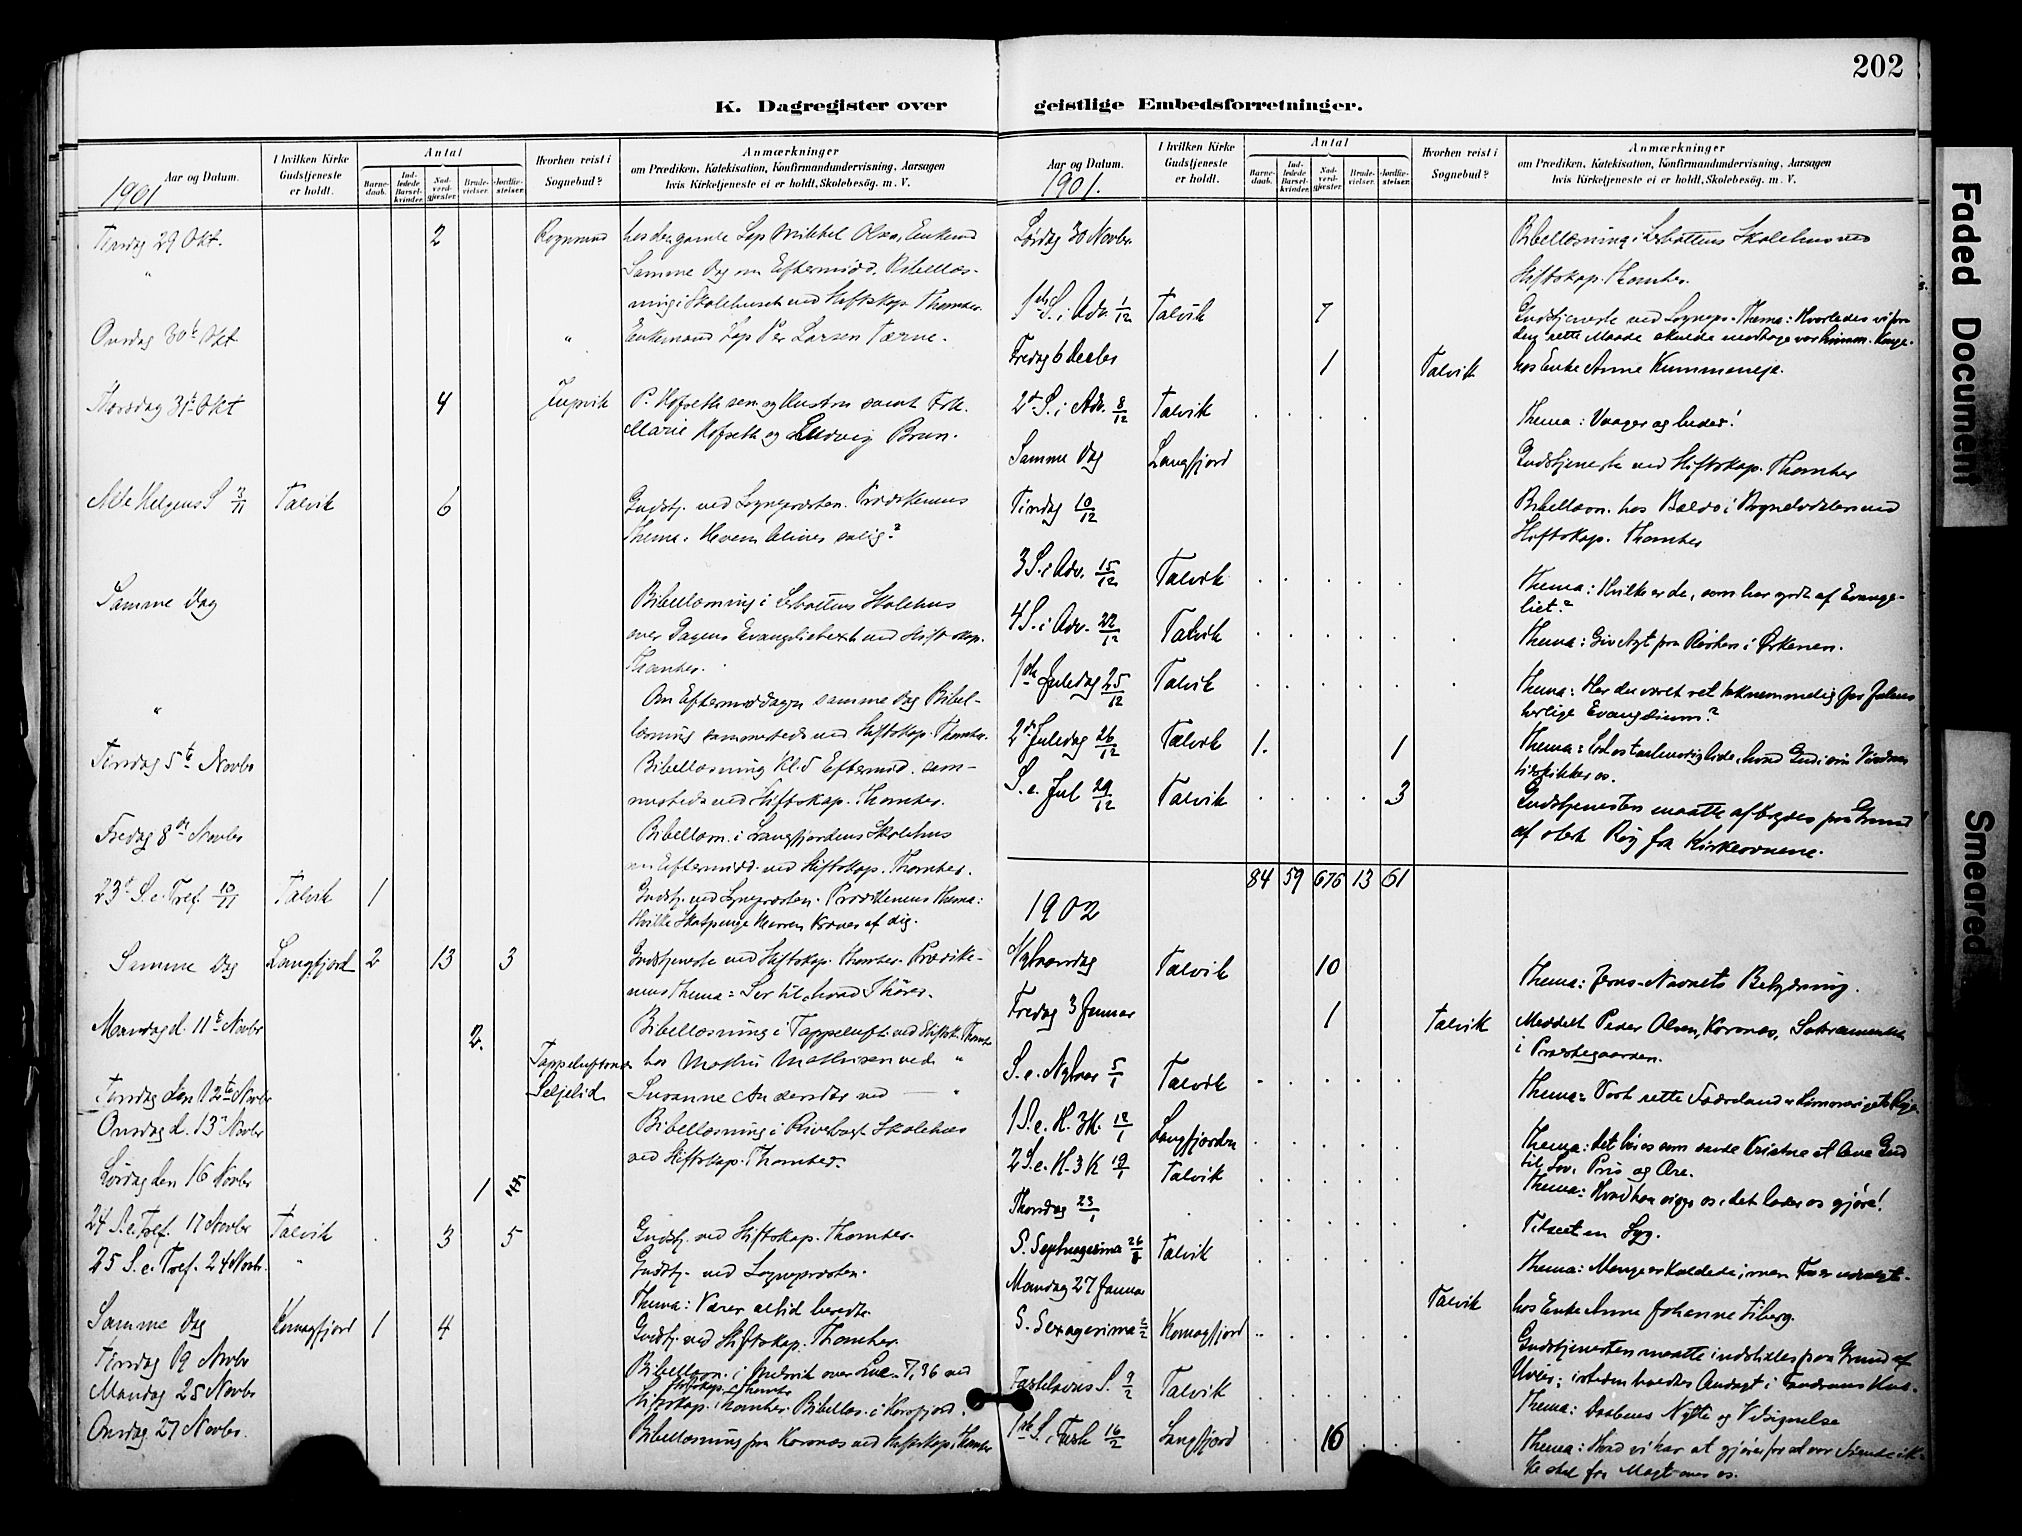 202
K. Dagregister over geistlige Embedsforretninger.
Aar og Datum.
1901
I hvilken Kirke Gudstjeneste er holdt.
Antal
Barnedaab.
Indledede Barselkvinder.
Nadverdgjester.
Brudevielser.
Jordfæstelser.
Hvorhen reist i Sognebud?
Anmærkninger
om Prædiken, Katekisation, Konfirmandundervisning, Aarsagen
hvis Kirketjeneste ei er holdt, Skolebesøg. m. V.
Tirsdag 29 Okt. 2 Rognsund hos den gamle Lap Mikkel Olsen, Enkemd
" Samme Dag om Eftermidd. Bibellæs-
ning i Skolehuset ved Stiftskap. Thomter.
Onsdag 30te Okt " Enkemand Lap Per Larsen Tærne.
Thorsdag 31te Okt 4 P. Hofseth sen og Hustru samt Frk.
Marie Hofseth og Ludvig Brun.
Alle Helgens S 3/11 Talvik 6 Gudstj. ved Sognepræsten. Prædikenens
Thema: Hvem bliver salig?
Samme Dag Bibellæsning i Skolehus
over Dagens Evangelietext ved Stiftskap.
Thomter.
" Om Eftermiddagen samme Dag Bibel-
læsning sammesteds ved Stiftskap. Thomter.
Tirsdag 5te Novbr Bibellæsning Kl. 5 Eftermid. sam-
mesteds ved Stiftskap. Thomter.
Fredag 8de Novbr Bibellæsn. i Langfjordens Skolehus
om Eftermidd. ved Stiftskap. Thomter.
23de S. e. Tref. 10/11 Talvik 1 Gudstj. ved Sognepræsten. Prædikenens Thema:
Hvilke Skatpenge Herren kræver af dig.
Samme Dag Langfjord 2 13 3 Gudstjeneste ved Stiftskap. Thomter. Prædike-
nens Thema: Se til, hvad I hører.
Mandag d. 11te Novbr 2. Bibellæsning i Tappeluft ved Stiftsk. Thomter
Tappeluftnæs hos Mathis Mathisen ved "
Tirsdag den 12te Novbr Seljelid Susanne Andersdtr ved — "
Onsdag d. 13de Novbr Bibellæsning i Skolehus
ved Stiftskap. Thomter.
Lørdag den 16 Novbr 1
24 S. e. Tref. 17 Novbr Talvik 3 5 Gudstj. ved Stiftskap. Thomter.
25 S. e. Tref. 24 Novbr. " Gudstj. ved Sognepræsten.
Thema: Værer altid beredte.
Samme Dag Komagfjord 1 4 Gudstj. ved Stiftskap. Thomter.
Tirsdag 19 Novbr Bibellæsn. i over Luc. 7,36 ved
Stiftskap. Thomter
Mandag 25 Novbr Stiftskap. Thomter. Bibellæs. i Korsfjord.
Onsdag 27 Novbr. Bibellæsning paa Korsnæs ved Stiftskap. Thomter
Aar og Datum.
1901.
I hvilken Kirke Gudstjeneste er holdt.
Antal
Barnedaab.
Indledede Barselkvinder.
Nadverdgjester.
Brudevielser.
Jordfæstelser.
Hvorhen reist i Sognebud?
Anmærkninger
om Prædiken, Katekisation, Konfirmandundervisning, Aarsagen
hvis Kirketjeneste ei er holdt, Skolebesøg. m. V.
Lørdag 30 Novbr. Bibellæsning i Skolehus ved
Stiftskap. Thomter.
1ste S. i Adv. 1/12 Talvik 7 Gudstjeneste ved Sognepr. Thema: Hvorledes vi paa
den rette Maade skulde modtage vor himm. Konge.
Fredag 6 Decbr 1 Talvik hos Enke Anne Kummeneje.
2de S. i Adv. 8/12 Talvik Thema: Vaager og beder!
Samme Dag Langfjord Gudstjeneste ved Stiftskap. Thomter
Tirsdag 10/12 Bibellæsn. hos ved
Stiftskap. Thomter
3 S. i Adv. 15/12 Talvik Thema: Hvilke er de, som har godt af Evange-
liet?
4 S. i Adv. 22/12 Talvik Thema: Giv Agt paa Røsten i Ørkenen.
1ste Juledag 25/12 Talvik Thema: Har du været ret taknemmelig for Julens
herlige Evangelium?
2de Juledag 26/12 Talvik 1. 1 Thema: Lad os taalmodig lide, hvad Gud i sin Visdom
tilskikker os.
S. e. Jul 29/12 Talvik 3 Gudstjenesten maatte afbrydes paa Grund
af sterk Røg fra Kirkeovnene.
84 59 676 13 61
1902
Nytaarsdag Talvik 10 Thema: Jesus-Navnets Betydning.
Fredag 3 Januar 1 Talvik Meddelt Peder Olsen, Korsnæs, Sakramentet
i Præstegaarden.
S. e. Nytaar 5/1 Talvik Thema: Vort rette Fædreland er Himmeriges Rige
1 S. e. H. 3 K. 12/1 Langfjorden Thema: Det bør os som sande Kristne at leve Gud
til Lov, Pris og Ære.
2 S. e. H. 3 K 19/1 Talvik Thema: Hvad han siger os, det lader os gjøre!
Thorsdag 23/1 Tilseet en Syg.
S. Septuagesima 26/1 Talvik Thema: Mange er kaldede, men Faa er udvalgte.
Mandag 27 Januar Talvik hos Enke Anne Johanne Eiberg.
S. Sexagesima 2/2 Komagfjord Gudstjenesten maatte indstilles paa Grund af
Uveir; isteden holdtes Andagt i Hus.
Fastelavns S. 9/2 Talvik Thema: Daabens Nytte og Velsignelse
1ste S. i Faste 16/2 Langfjord 16 Thema: Hvad vi har at gjøre for at vor Fiende ik-
ke skal faa Magt over os.
Faded Document
Smeared